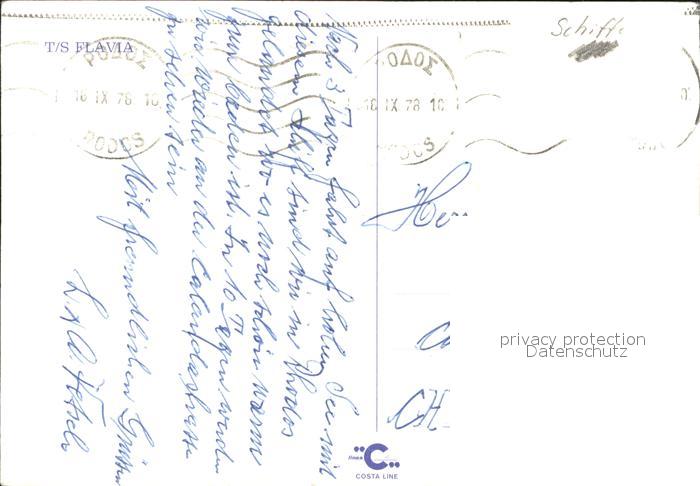 Schiffe
T/S FLAVIA
ΡΟΔΟΣ
18 IX 78 10
RODOS
ΡΟΔΟΣ
18 IX 78 10
RODOS
Nach 3 Tagen Fahrt auf hoher See mit
diesem Schiff sind wir in Rhodos
gelandet wo es noch schön warm
zum baden ist. In 10 Tagen werden
wir wieder an der
zu sein
Mit freundlichen Grüssen
Her
CH-
privacy protection
Datenschutz
C
COSTA LINE